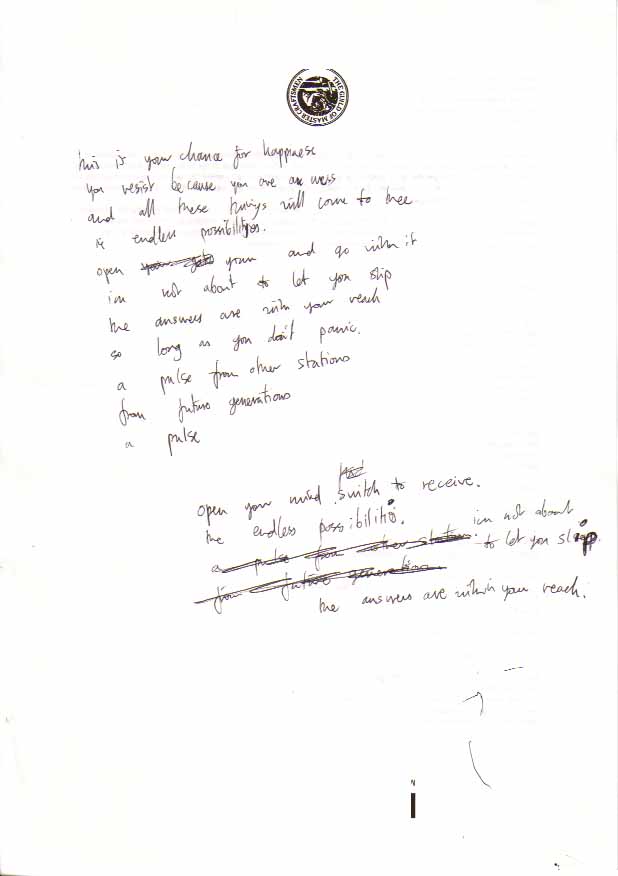 THE GUILD OF MASTER CRAFTSMEN
this is your chance for happiness
you resist because you are a mess
and all these things will come to thee
is endless possibilities.
open your and go with it
im not about to let you slip
the answers are with your reach
so long as you don't panic.
a pulse from other stations
from future generations
a pulse
open your mind switch to receive.
the endless possibilitis.
im not about
a pulse from other stations to let you slip.
from future generations
the answers are within your reach.